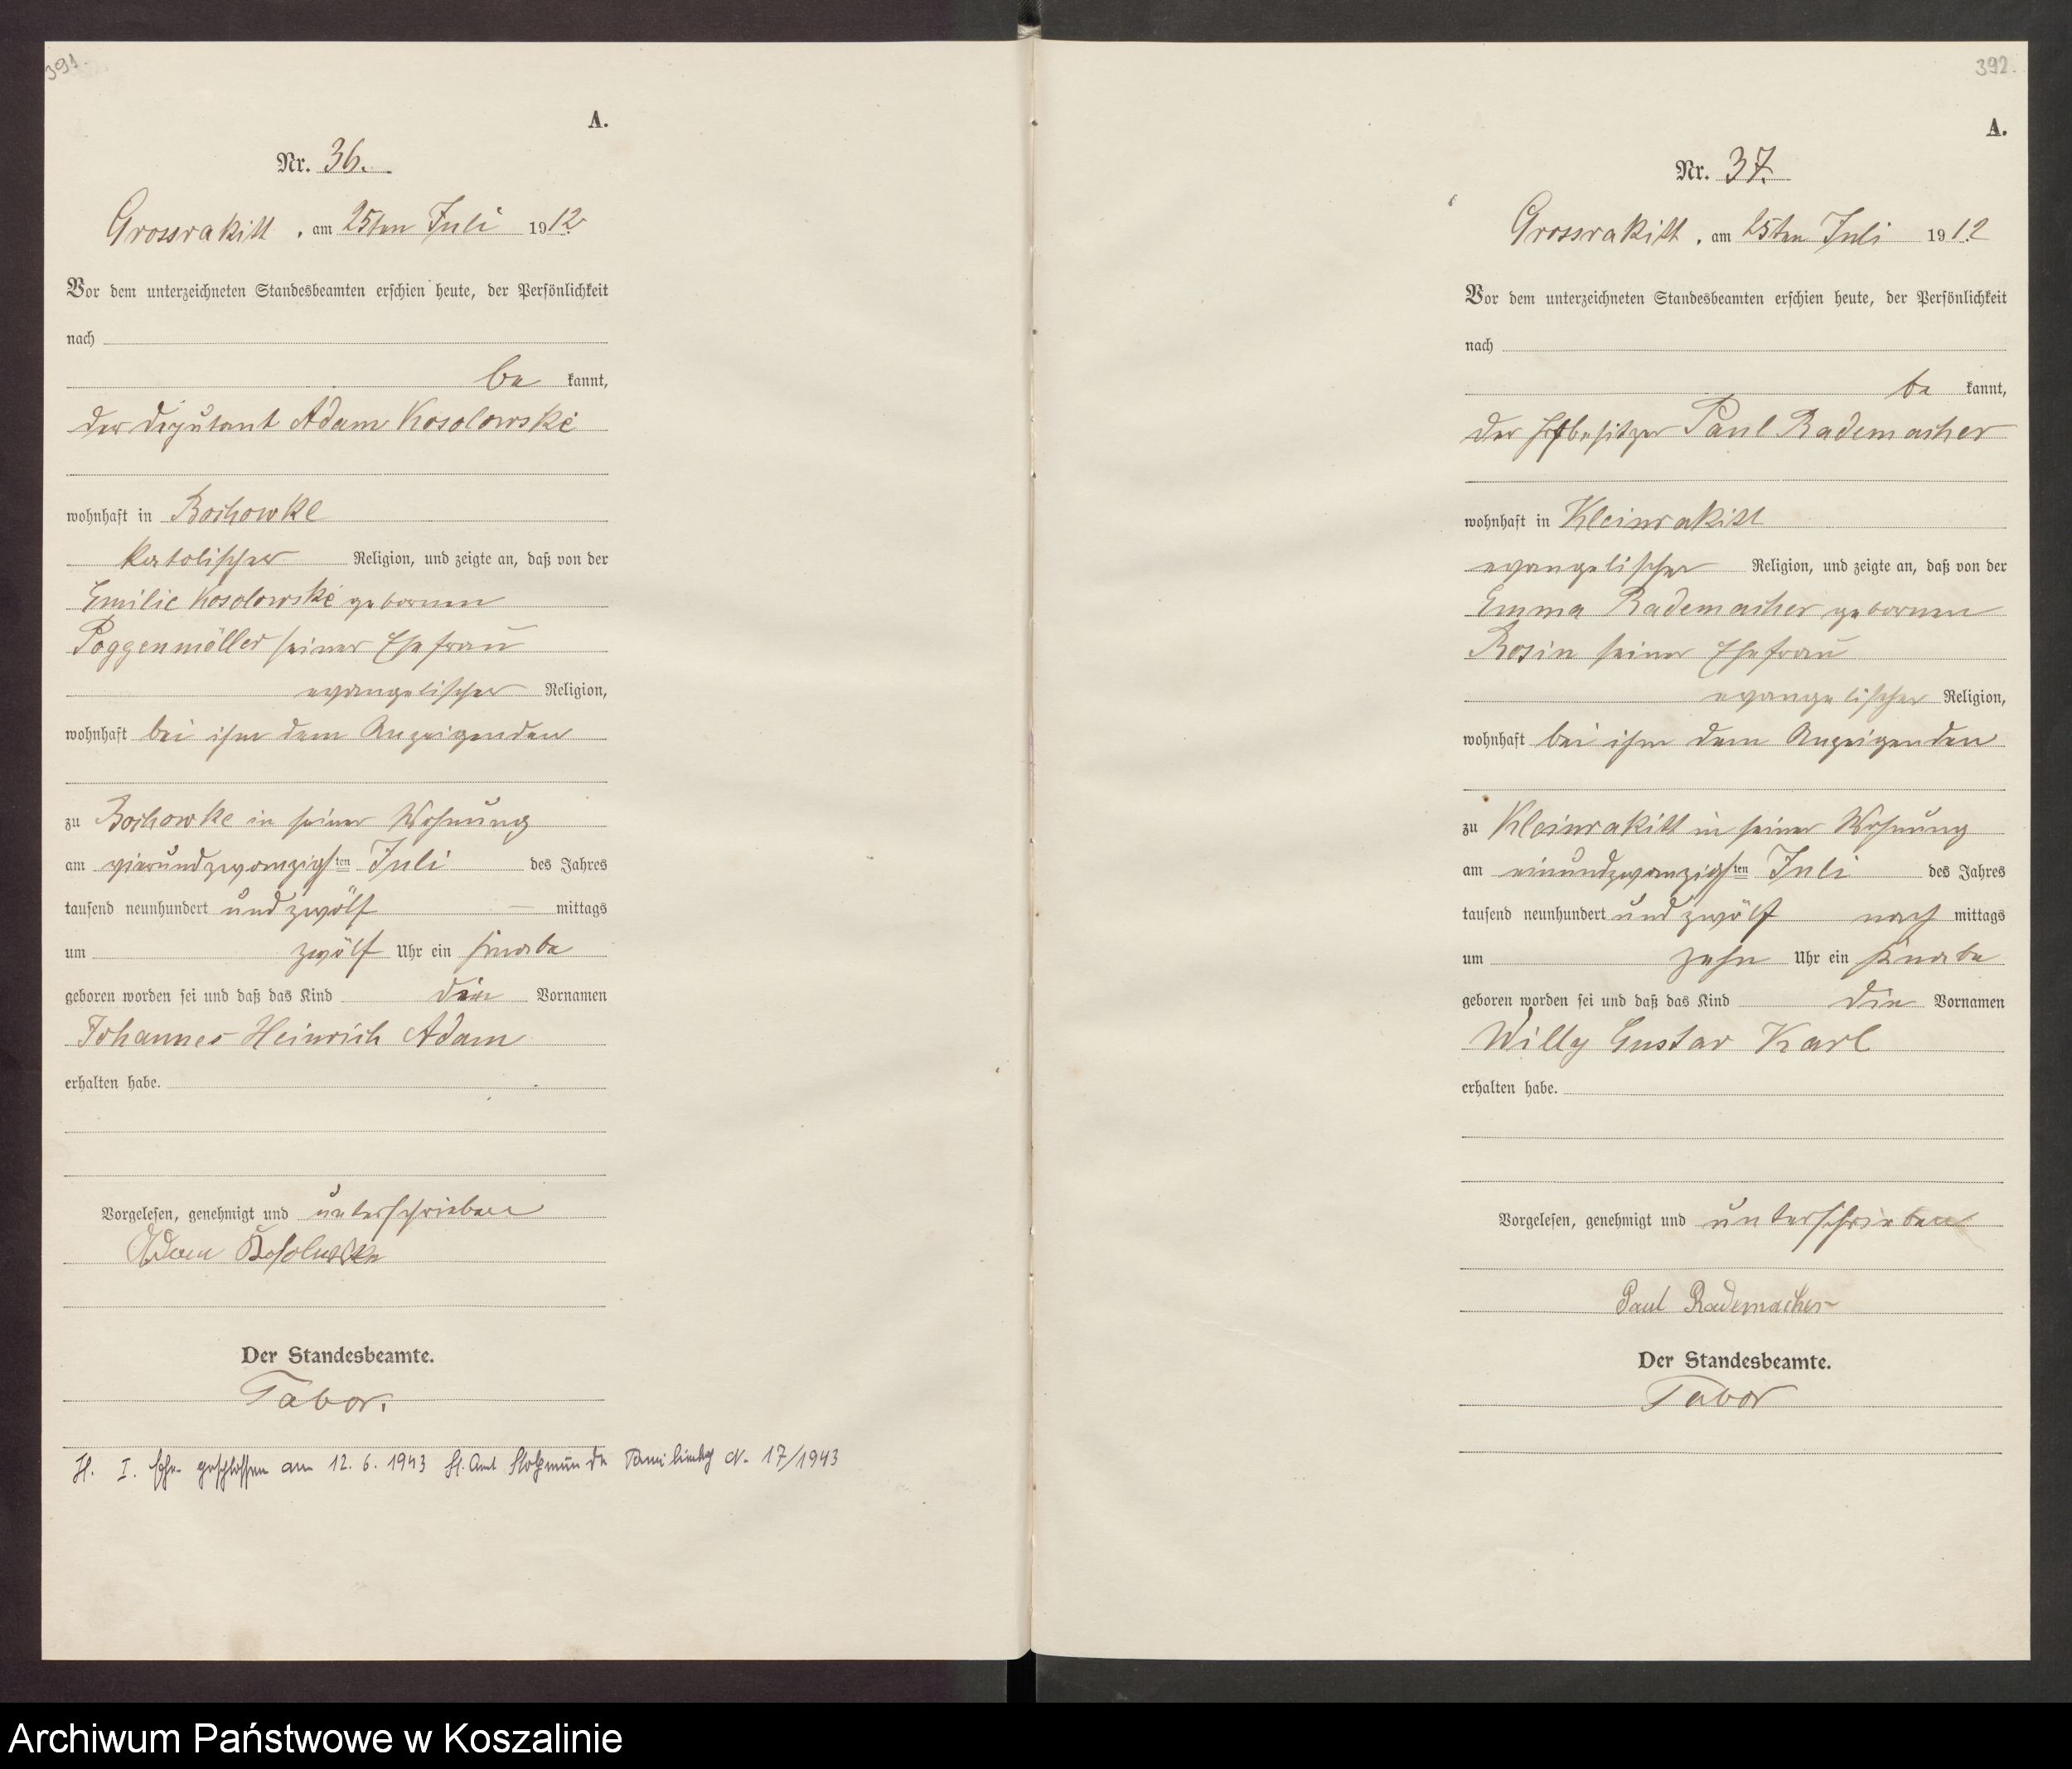 391.
A.
Nr. 36.
Grossrakitt, am 25ten Juli 1912
Vor dem unterzeichneten Standesbeamten erschien heute, der Persönlichkeit
nach
be kannt,
der Deputant Adam Kosolowske
wohnhaft in Bochowke
katolischer Religion, und zeigte an, daß von der
Emilie Kosolowske gebornen
Poggenmöller seiner Ehefrau
evangelischer Religion,
wohnhaft bei ihm dem Anzeigenden
zu Bochowke in seiner Wohnung
am vierundzwanzigsten Juli des Jahres
tausend neunhundert und zwölf — mittags
um zwölf Uhr ein Knabe
geboren worden sei und daß das Kind die Vornamen
Johannes Heinrich Adam
erhalten habe.
Vorgelesen, genehmigt und unterschrieben
Adam Kosolowske
Der Standesbeamte.
Tabor.
H. I. Ehe geschlossen am 12. 6. 1943 St. Amt Stolpmünde N. 17/1943
392.
A.
Nr. 37.
Grossrakitt, am 25ten Juli 1912
Vor dem unterzeichneten Standesbeamten erschien heute, der Persönlichkeit
nach
be kannt,
der Paul Rademacher
wohnhaft in Kleinrakitt
evangelischer Religion, und zeigte an, daß von der
Emma Rademacher gebornen
Rosin seiner Ehefrau
evangelischer Religion,
wohnhaft bei ihm dem Anzeigenden
zu Kleinrakitt in seiner Wohnung
am einundzwanzigsten Juli des Jahres
tausend neunhundert und zwölf nach mittags
um zehn Uhr ein Knabe
geboren worden sei und daß das Kind die Vornamen
Willy Gustav Karl
erhalten habe.
Vorgelesen, genehmigt und unterschrieben
Paul Rademacher
Der Standesbeamte.
Tabor
Archiwum Państwowe w Koszalinie